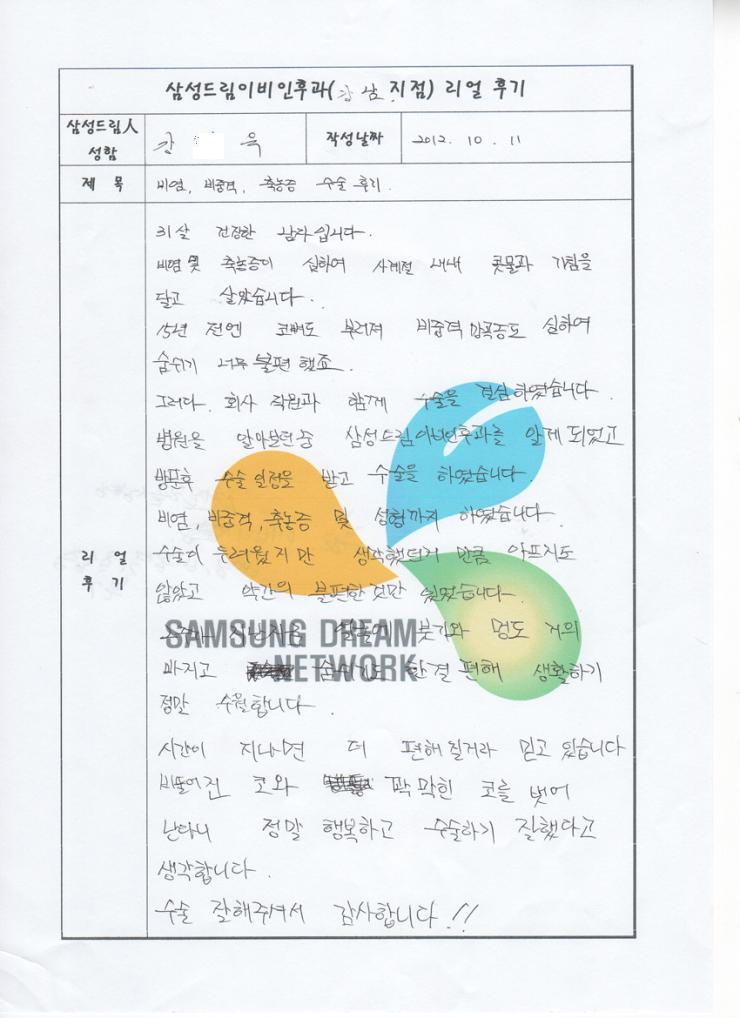 삼성드림이비인후과(강남 지점) 리얼 후기
삼성드림人
성함
강 욱
작성날짜
2012. 10. 11
제 목
비염, 비중격, 축농증 수술 후기.
리 얼
후 기
31살 건장한 남자입니다.
비염 및 축농증이 심하여 사계절 내내 콧물과 기침을
달고 살았습니다.
15년 전엔 코뼈도 부러져 비중격 만곡증도 심하여
숨쉬기 너무 불편 했죠.
그러다. 회사 직원과 함께 수술을 결심하였습니다.
병원을 알아보던중 삼성드림이비인후과를 알게 되었고
방문후 수술 일정을 받고 수술을 하였습니다.
비염, 비중격, 축농증 및 성형까지 하였습니다.
수술이 두려웠지만 생각했던거 만큼 아프지도
않았고 약간의 불편한것만 있었습니다.
지난 지금 얼굴에 붓기와 멍도 거의
빠지고 숨쉬기도 한결 편해 생활하기
정말 수월합니다.
시간이 지나면 더 편해질거라 믿고 있습니다
비뚤어진 코와 꽉 막힌 코를 벗어
난다니 정말 행복하고 수술하기 잘했다고
생각합니다.
수술 잘해주셔서 감사합니다.!!
SAMSUNG DREAM
NETWORK